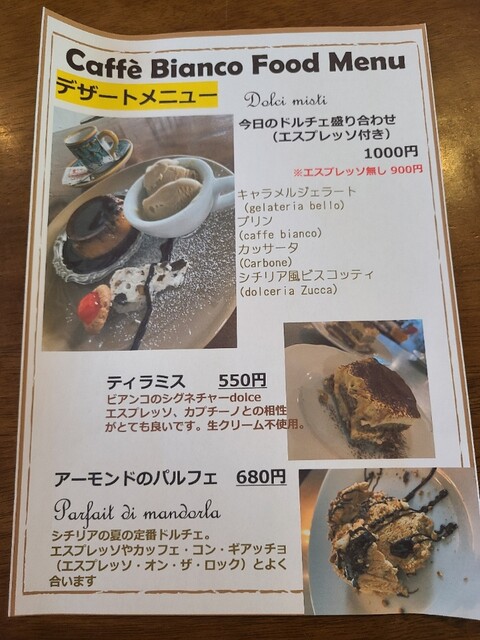 Caffè Bianco Food Menu
デザートメニュー
Dolci misti
今日のドルチェ盛り合わせ
（エスプレッソ付き）
1000円
※エスプレッソ無し 900円
キャラメルジェラート
(gelateria bello)
プリン
(caffe bianco)
カッサータ
(Carbone)
シチリア風ビスコッティ
(dolceria Zucca)
ティラミス 550円
ビアンコのシグネチャーdolce
エスプレッソ、カプチーノとの相性
がとても良いです。生クリーム不使用。
アーモンドのパルフェ 680円
Parfait di mandorla
シチリアの夏の定番ドルチェ。
エスプレッソやカッフェ・コン・ギアッチョ
（エスプレッソ・オン・ザ・ロック）とよく
合います